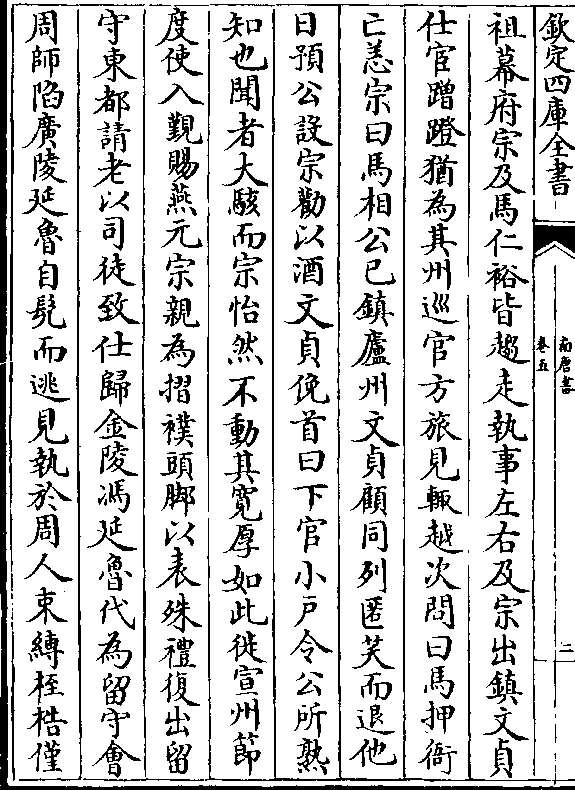 欽定四庫全書
南唐書
卷五
二
祖幕府宗及馬仁裕皆趨走執事左右及宗出鎮文貞
仕宦蹭蹬猶為其州巡官方旅見輒越次問曰馬押衙
亡恙宗曰馬相公已鎮廬州文貞顧同列匿笑而退他
日預公設宗勸以酒文貞俛首曰下官小戸令公所熟
知也聞者大駭而宗怡然不動其寛厚如此徙宣州節
度使入覲賜燕元宗親為摺襆頭脚以表殊禮復出留
守東都請老以司徒致仕歸金陵馮延魯代為留守會
周師陷廣陵延魯自髠而逃見執於周人束縛桎梏僅